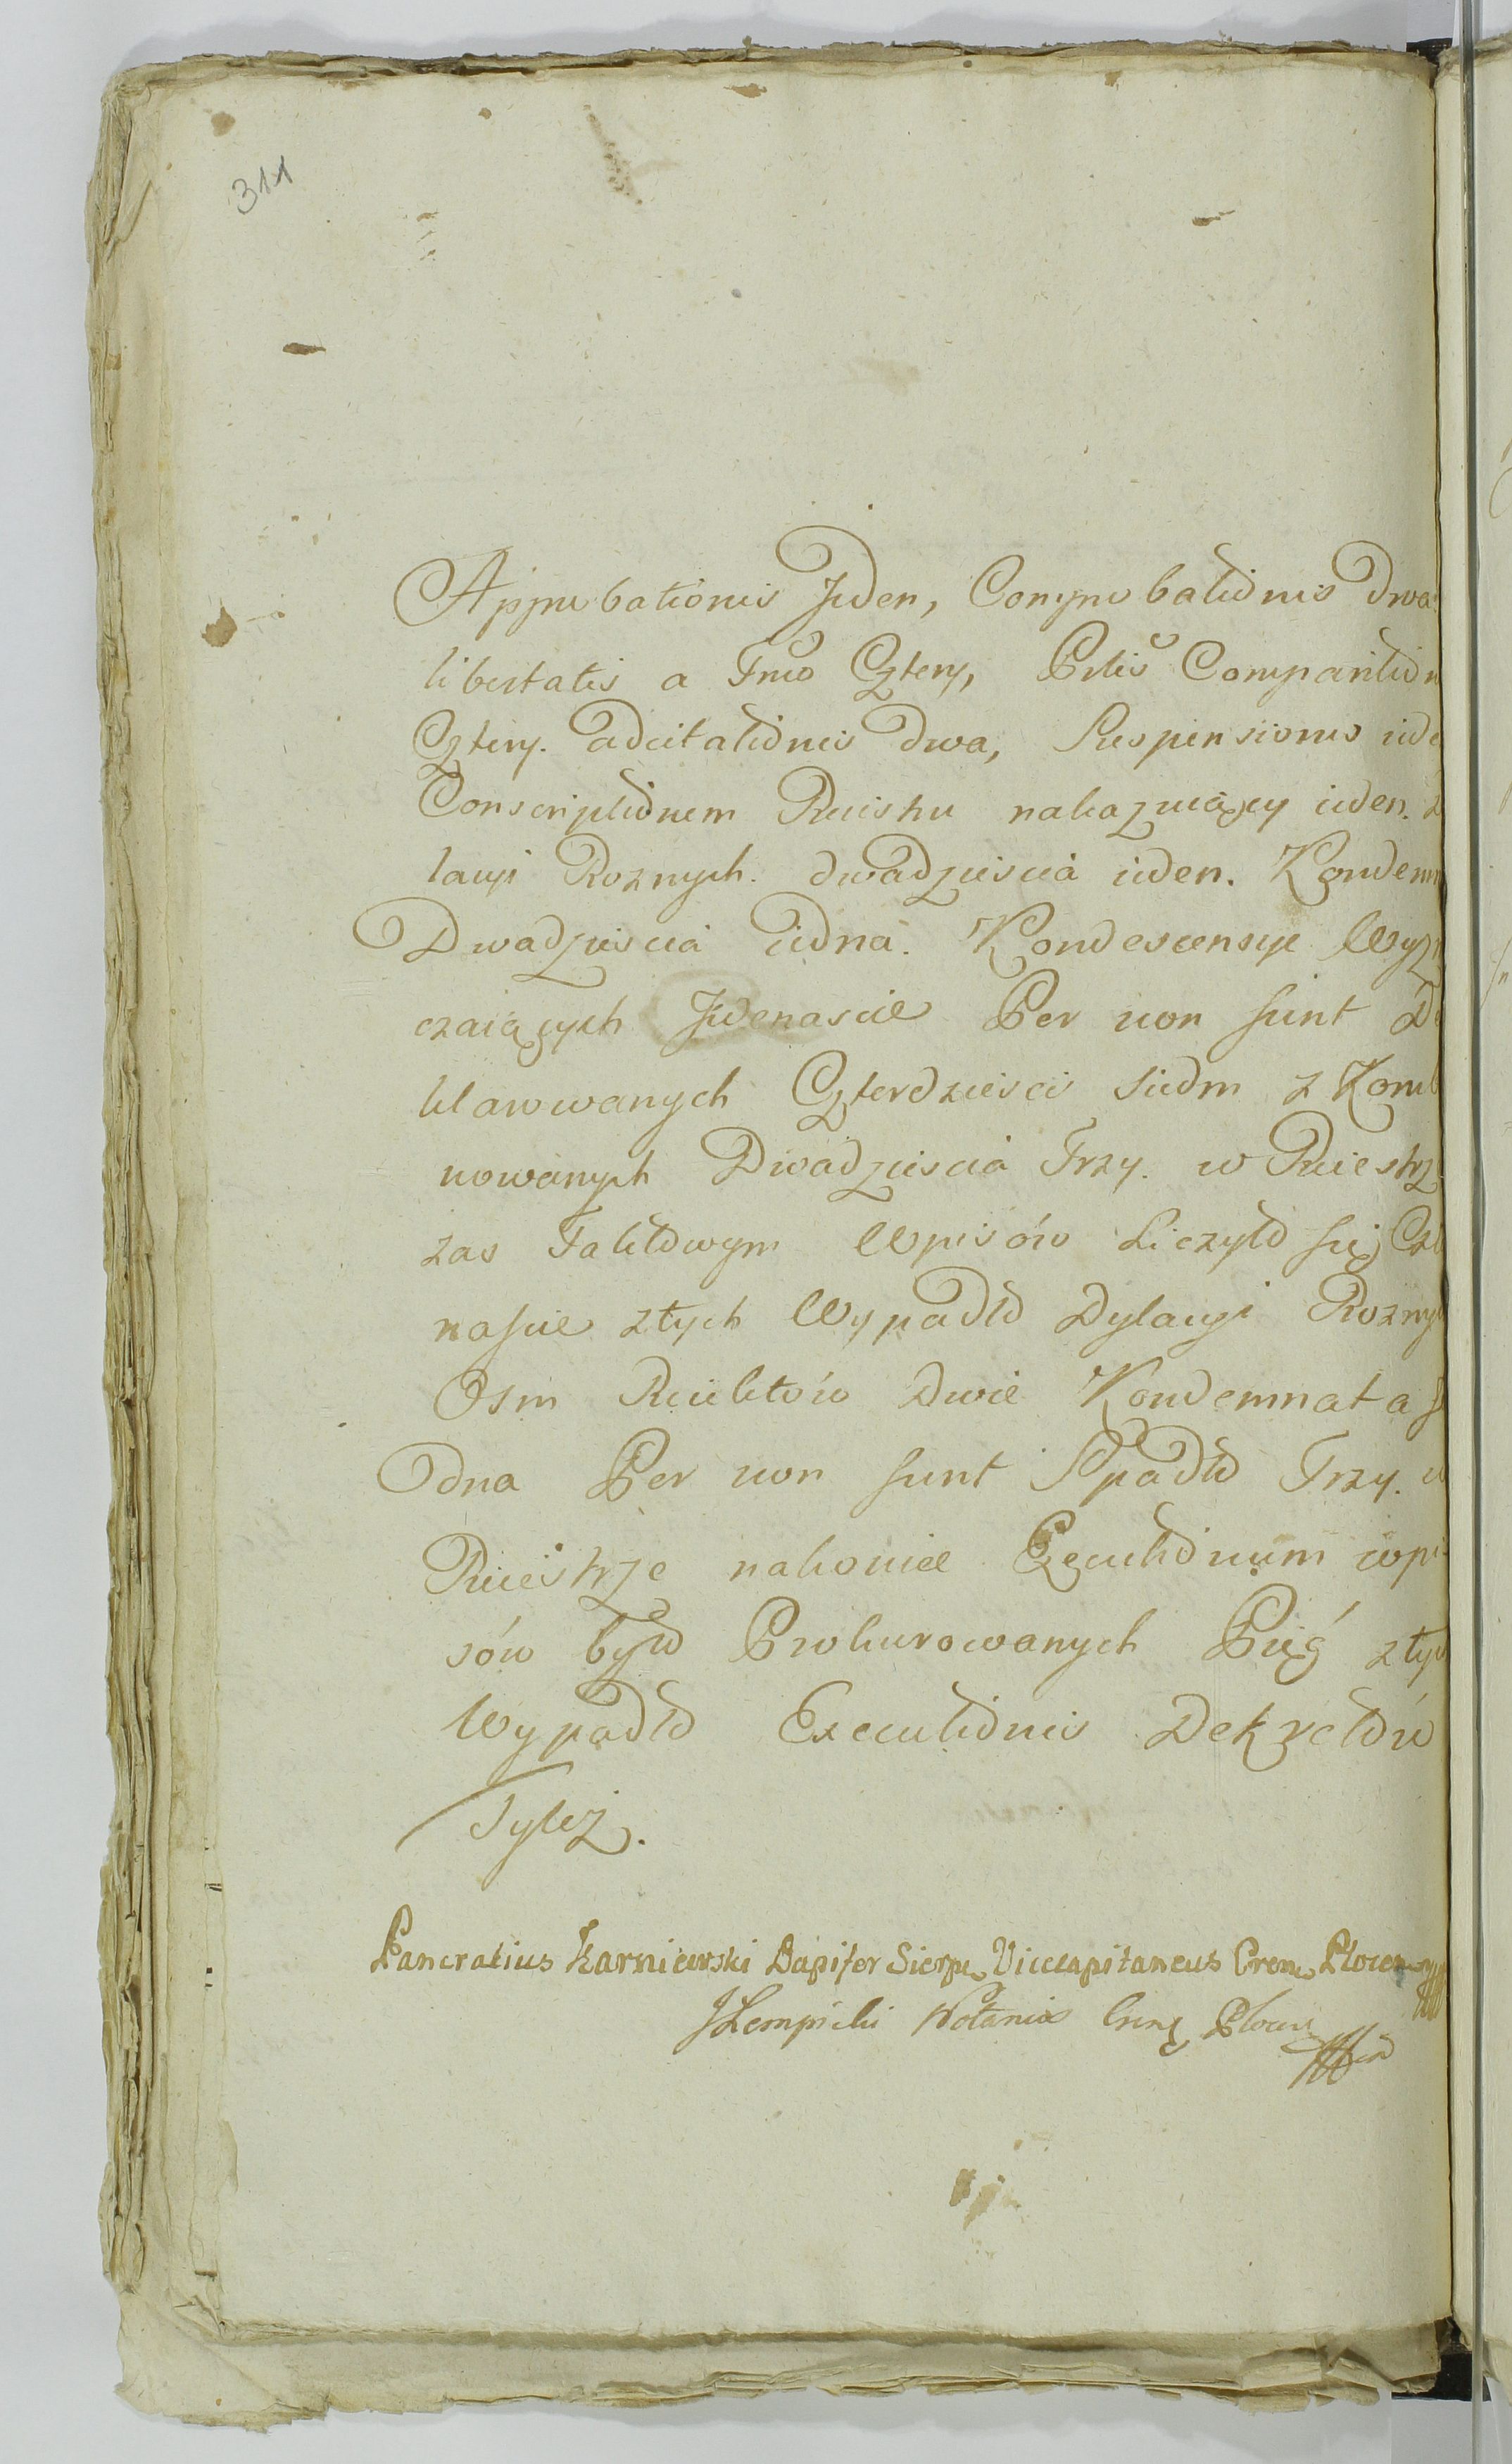 311
Approbationis Jeden, Comprobationis Dwa
libertatis a Frio Cztery, Prtis Comparitión
Cztery. adcitationis dwa, Suspensionis ide
Conscriptionem Reiestru nakazuiący ieden. 
lacyi Roznych. dwadziescia ieden. Kondemn
Dwadziescia iedna. Kondescensye Wyzn
czaiących Jedenascie Per non sunt De
klarowanych Czterdziesci siedm z Komb
nowanych Dwadziescia Trzy. w Reiestrz
zas Taktowym Wpisów Liczyło się Czt
nascie z tych Wypadło Dylacyi Roznyc
Osm Reiektów Dwie Kondemnata J
Edna Per non sunt Spadło Trzy. w
Reiestrze nakonice Executionum wpi-
sów było Prokurowanych Pięć z tyc
Wypadło Executionis Dekretów
Tyleż.
Pancratius Karniewski Dapifer Sierpc Vicecapitaneus Crem Plocen mp
JŁempicki Notarius Cren Plocen mp